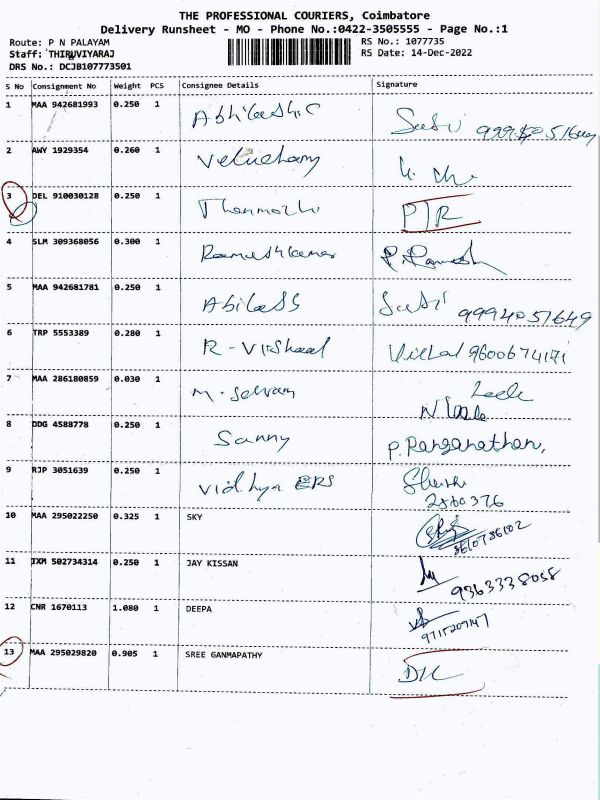 THE PROFESSIONAL COURIERS, Coimbatore
Delivery Runsheet - MO - Phone No.:0422-3505555 - Page No.:1
Route: P N PALAYAM RS No.: 1077735
Staff: THIRUVIYARAJ RS Date: 14-Dec-2022
DRS No.: DCJB107773501
S No Consignment No Weight PCS Consignee Details Signature
1 MAA 942681993 0.250 1
2 AWY 1929354 0.260 1 Veluchamy
3 DEL 910030128 0.250 1 Thenmozhi
4 SLM 309368056 0.300 1 Rameshkumar P. Ramesh
5 MAA 942681781 0.250 1 Abilash 9994051649
6 TRP 5553389 0.280 1 R - Vishaal Vishal 9600674171
7 MAA 286180859 0.030 1 M. Selvam
8 DDG 4588778 0.250 1 Sanny P. Ranganathan,
9 RJP 3051639 0.250 1 Vidhya ERS
10 MAA 295022250 0.325 1 SKY
11 IXM 502734314 0.250 1 JAY KISSAN 9363338058
12 CNR 1670113 1.080 1 DEEPA
13 MAA 295029820 0.905 1 SREE GANMAPATHY